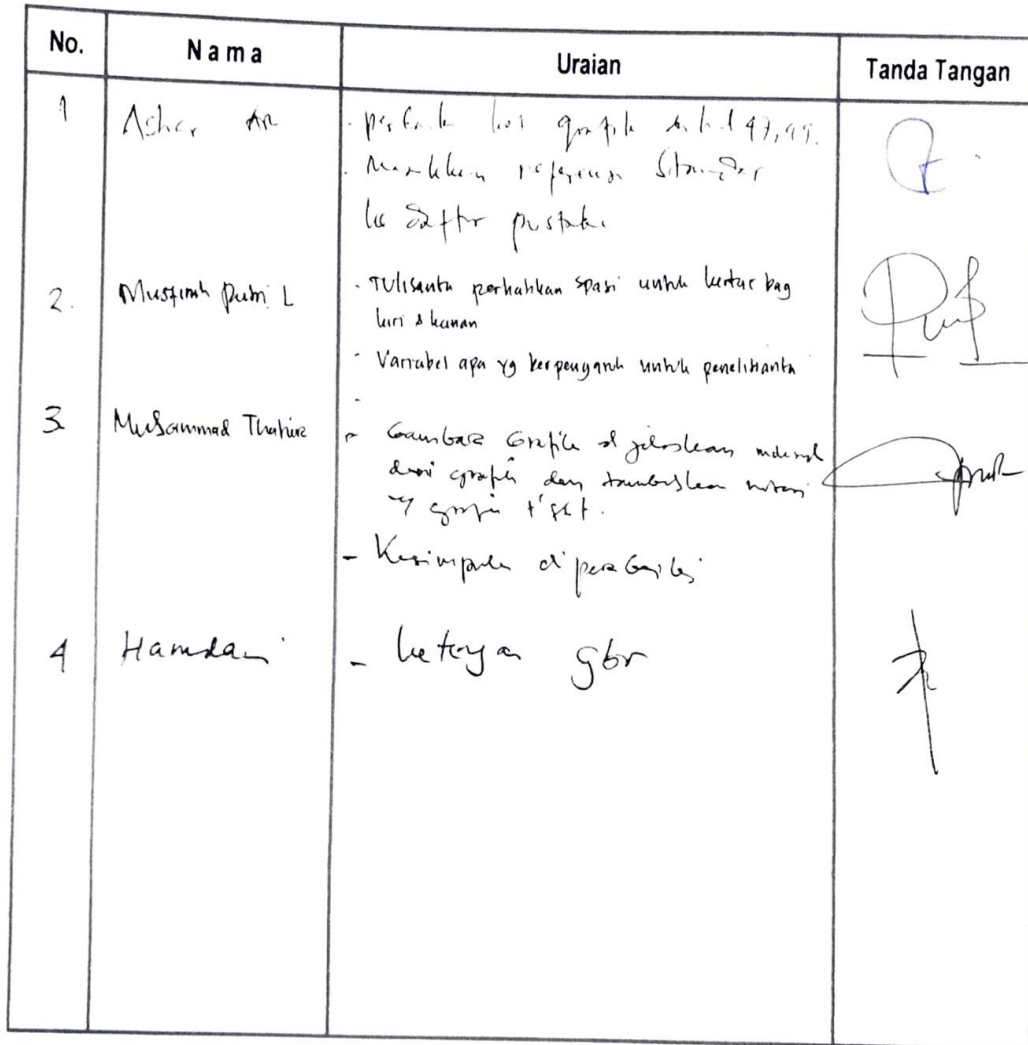 No. Nama Uraian Tanda Tangan
1 Ashar AR - grafik hal 47,
- Masukkan referensi Standar
ke Daftar pustaka
2. Putri L - Tulisanta perhatikan spasi untuk kertas bag
kiri & kanan
- Variabel apa yg berpengaruh untuk penelitianta
-
3. Muhammad Thahir - Gambar Grafik di jelaskan
dari grafik dan tambahkan
grafik
- Kesimpulan di perbaiki
4 Hamdani - gbr